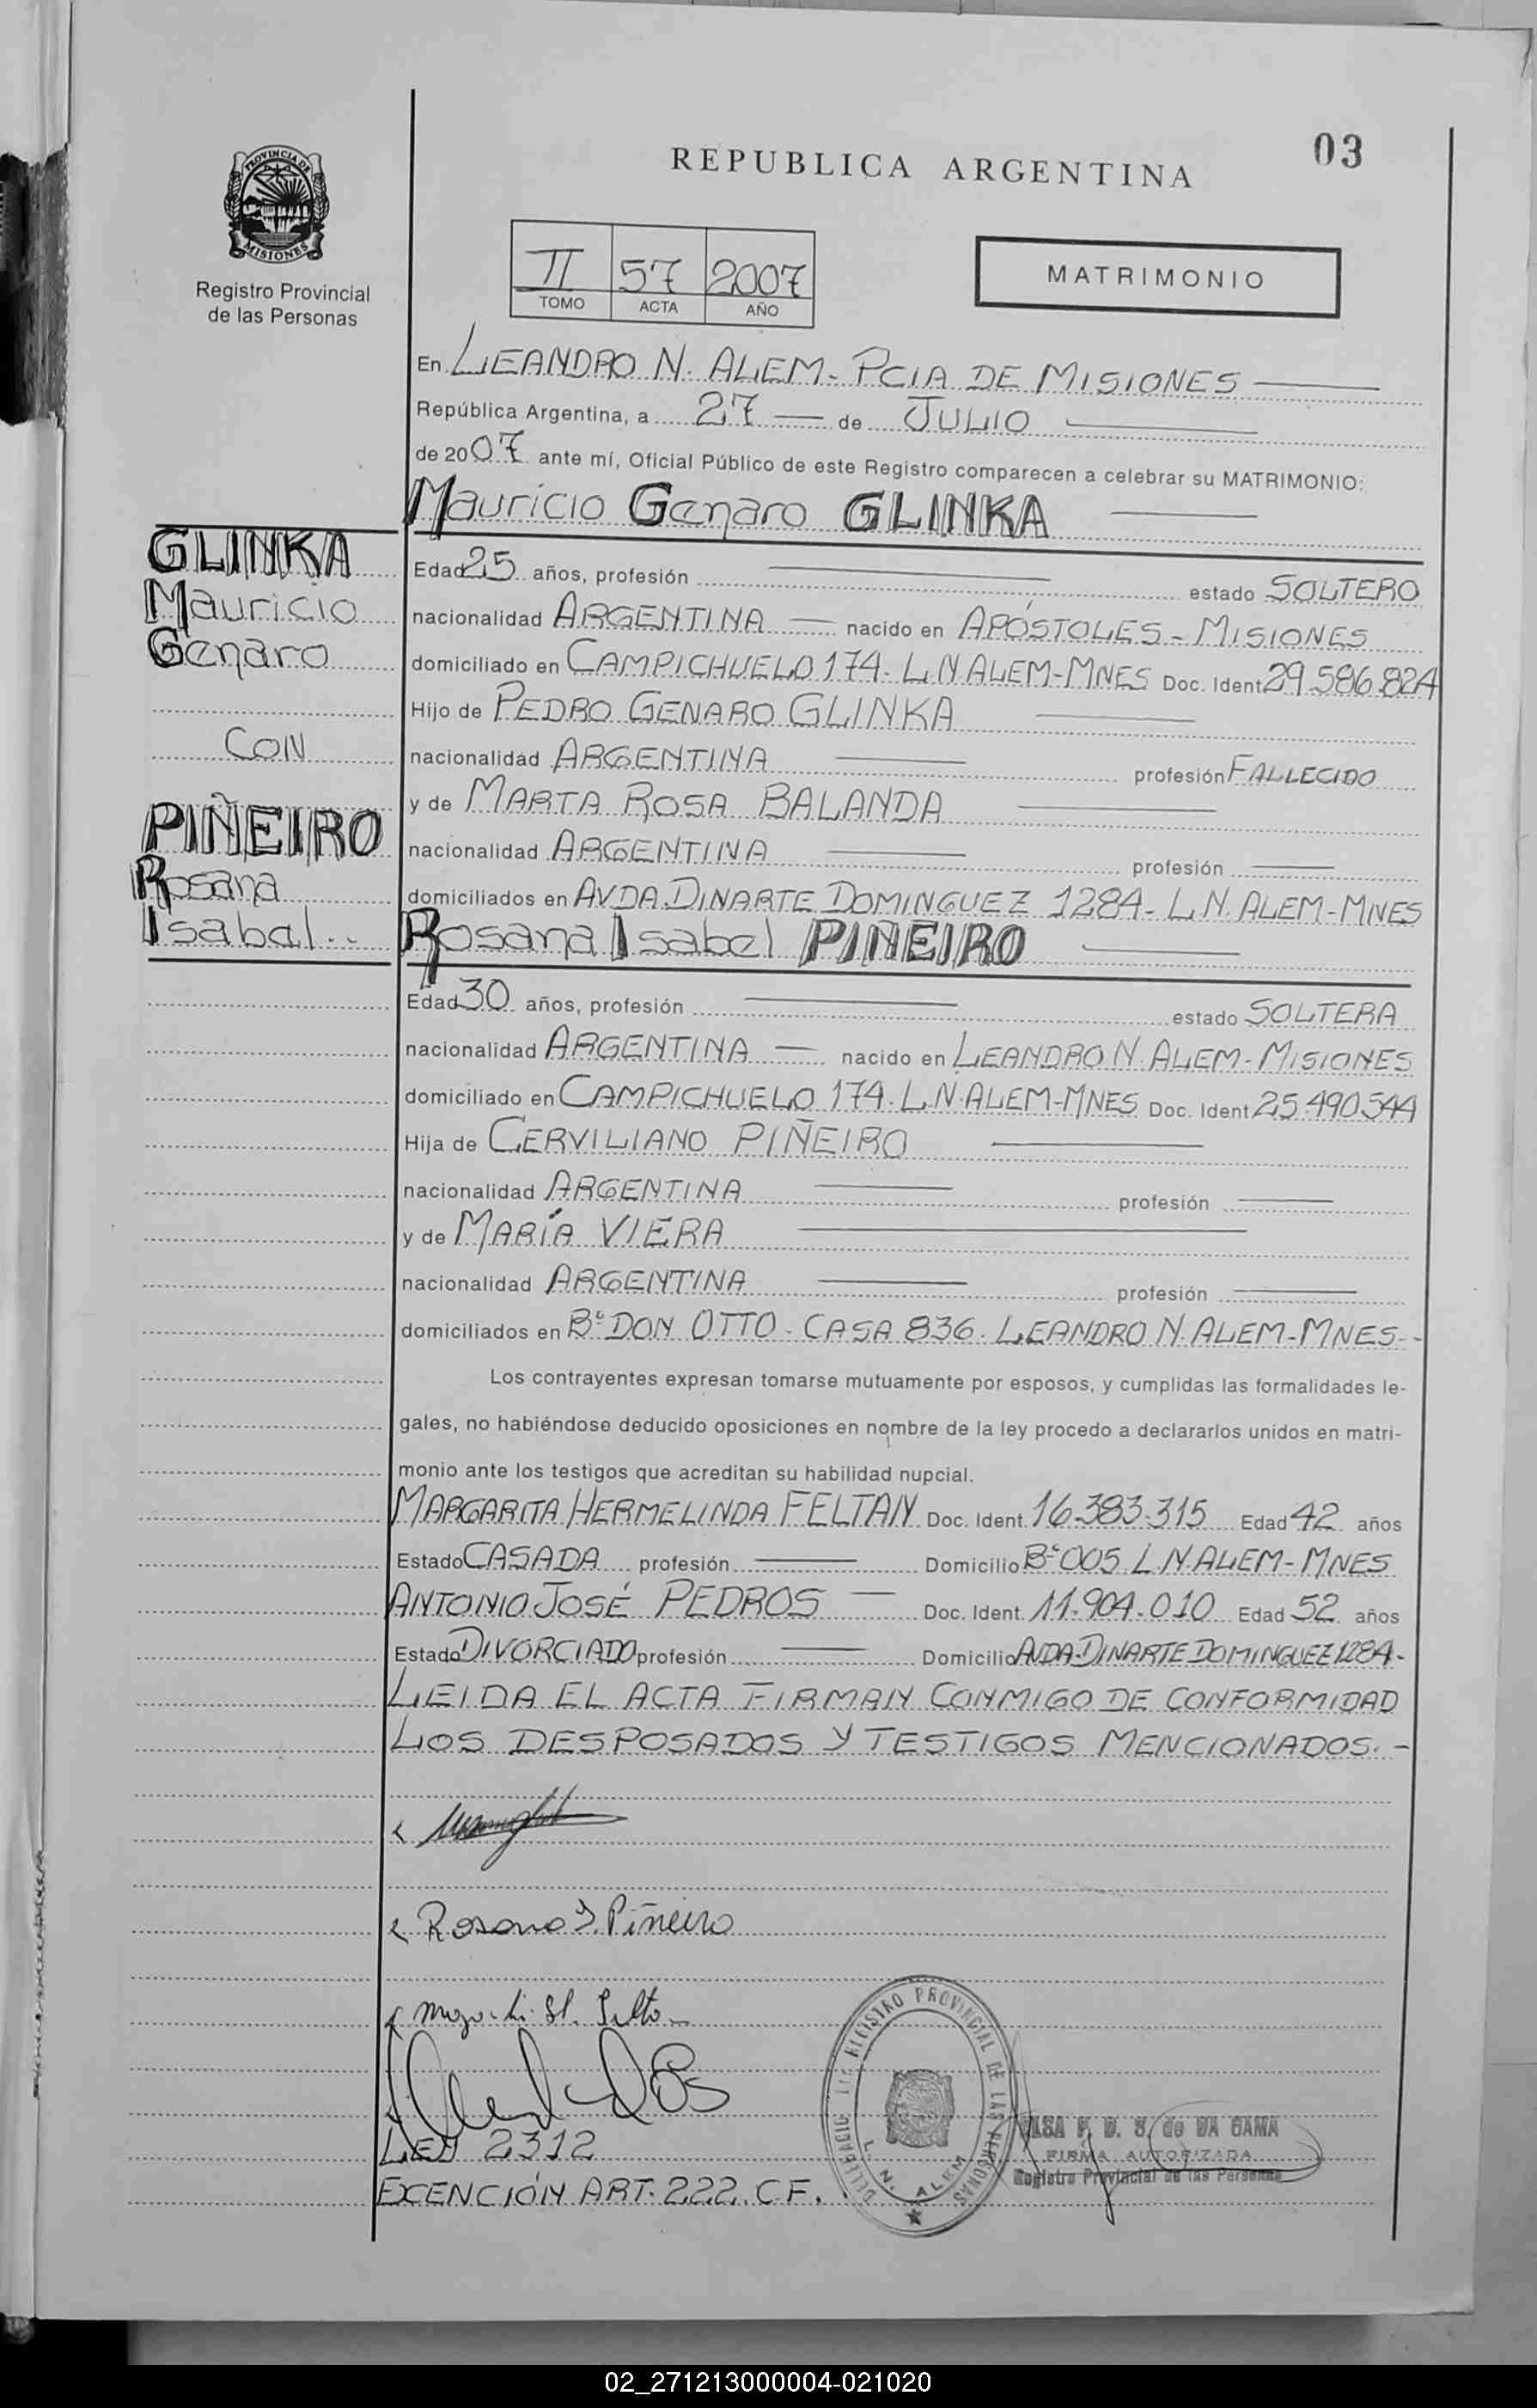 03
REPUBLICA ARGENTINA
PROVINCIA DE
MISIONES
Registro Provincial
de las Personas
II 57 2007
TOMO ACTA AÑO
MATRIMONIO
En LEANDRO N. ALEM - PCIA DE MISIONES
República Argentina, a 27 de JULIO
de 2007 ante mí, Oficial Público de este Registro comparecen a celebrar su MATRIMONIO:
Mauricio Genaro GLINKA
GLINKA
Mauricio
Genaro
CON
PIÑEIRO
Rosana
Isabel
Edad 25 años, profesión estado SOLTERO
nacionalidad ARGENTINA nacido en APÓSTOLES - MISIONES
domiciliado en CAMPICHUELO 174. L.N ALEM-MNES Doc. Ident. 29.586.824
Hijo de PEDRO GENARO GLINKA
nacionalidad ARGENTINA profesión FALLECIDO
y de MARTA ROSA BALANDA
nacionalidad ARGENTINA profesión
domiciliados en AVDA. DINARTE DOMINGUEZ 1284- L.N. ALEM-MNES
Rosana Isabel PIÑEIRO
Edad 30 años, profesión estado SOLTERA
nacionalidad ARGENTINA nacido en LEANDRO N. ALEM- MISIONES
domiciliado en CAMPICHUELO 174. L.N. ALEM-MNES Doc. Ident 25.490.544
Hija de CERVILIANO PIÑEIRO
nacionalidad ARGENTINA profesión
y de MARÍA VIERA
nacionalidad ARGENTINA profesión
domiciliados en Bº DON OTTO - CASA 836. LEANDRO N. ALEM-MNES.-
Los contrayentes expresan tomarse mutuamente por esposos, y cumplidas las formalidades le-
gales, no habiéndose deducido oposiciones en nombre de la ley procedo a declararlos unidos en matri-
monio ante los testigos que acreditan su habilidad nupcial.
MARGARITA HERMELINDA FELTAN Doc. Ident. 16.383.315 Edad 42 años
Estado CASADA profesión Domicilio Bº 005 L.N. ALEM- MNES
ANTONIO JOSÉ PEDROS Doc. Ident. 11.904.010 Edad 52 años
Estado DIVORCIADO profesión Domicilio AVDA. DINARTE DOMINGUEZ 1284-
LEIDA EL ACTA FIRMAN CONMIGO DE CONFORMIDAD
LOS DESPOSADOS Y TESTIGOS MENCIONADOS. -
Rosana I. Piñeiro
REGISTRO PROVINCIAL DE LAS PERSONAS
L. N. ALEM
DA GAMA
FIRMA AUTORIZADA
Registro Provincial de las Personas
LEY 2312
EXENCIÓN ART. 222 C.F.
02_271213000004-021020